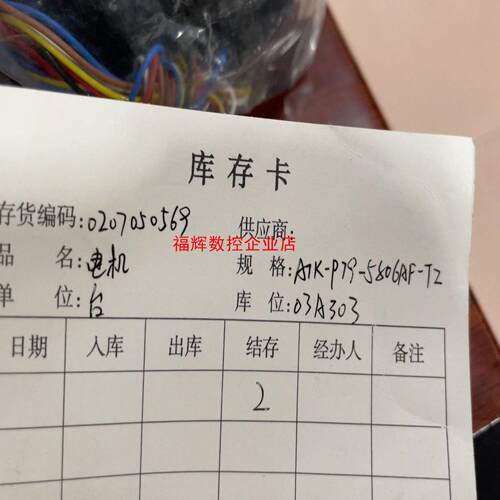 库存卡
存货编码:0207050569 供应商:
福辉数控企业店
品 名:电机 规 格:A7K-P79-5806AF-T2
单 位:台 库 位:03A303
日期 入库 出库 结存 经办人 备注
2